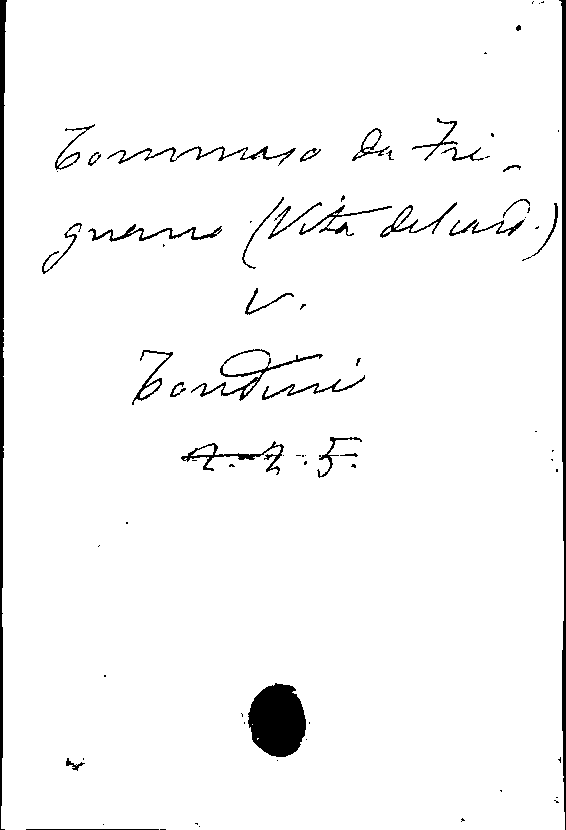 Tommaso da Fri-
gnano (Vita del card.)
V.
Tondini